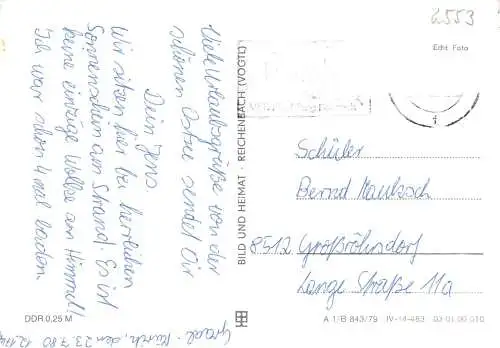 2553
Echt Foto
Viele Urlaubsgrüße von der
schönen Ostsee sendet Dir
Dein Jens
Wir sitzen hier bei herrlichen
Sonnenschein am Strand. Es ist
keine einzige Wolke am Himmel!
Ich war schon 4 mal baden.
Graal-Müritz, den 23.7.80
BILD UND HEIMAT · REICHENBACH (VOGTL)
Schüler
Bernd
8512 Großröhrsdorf
Lange Straße 11a
DDR 0,25 M
A 1/B 843/79 IV-14-483 03 01 00 010